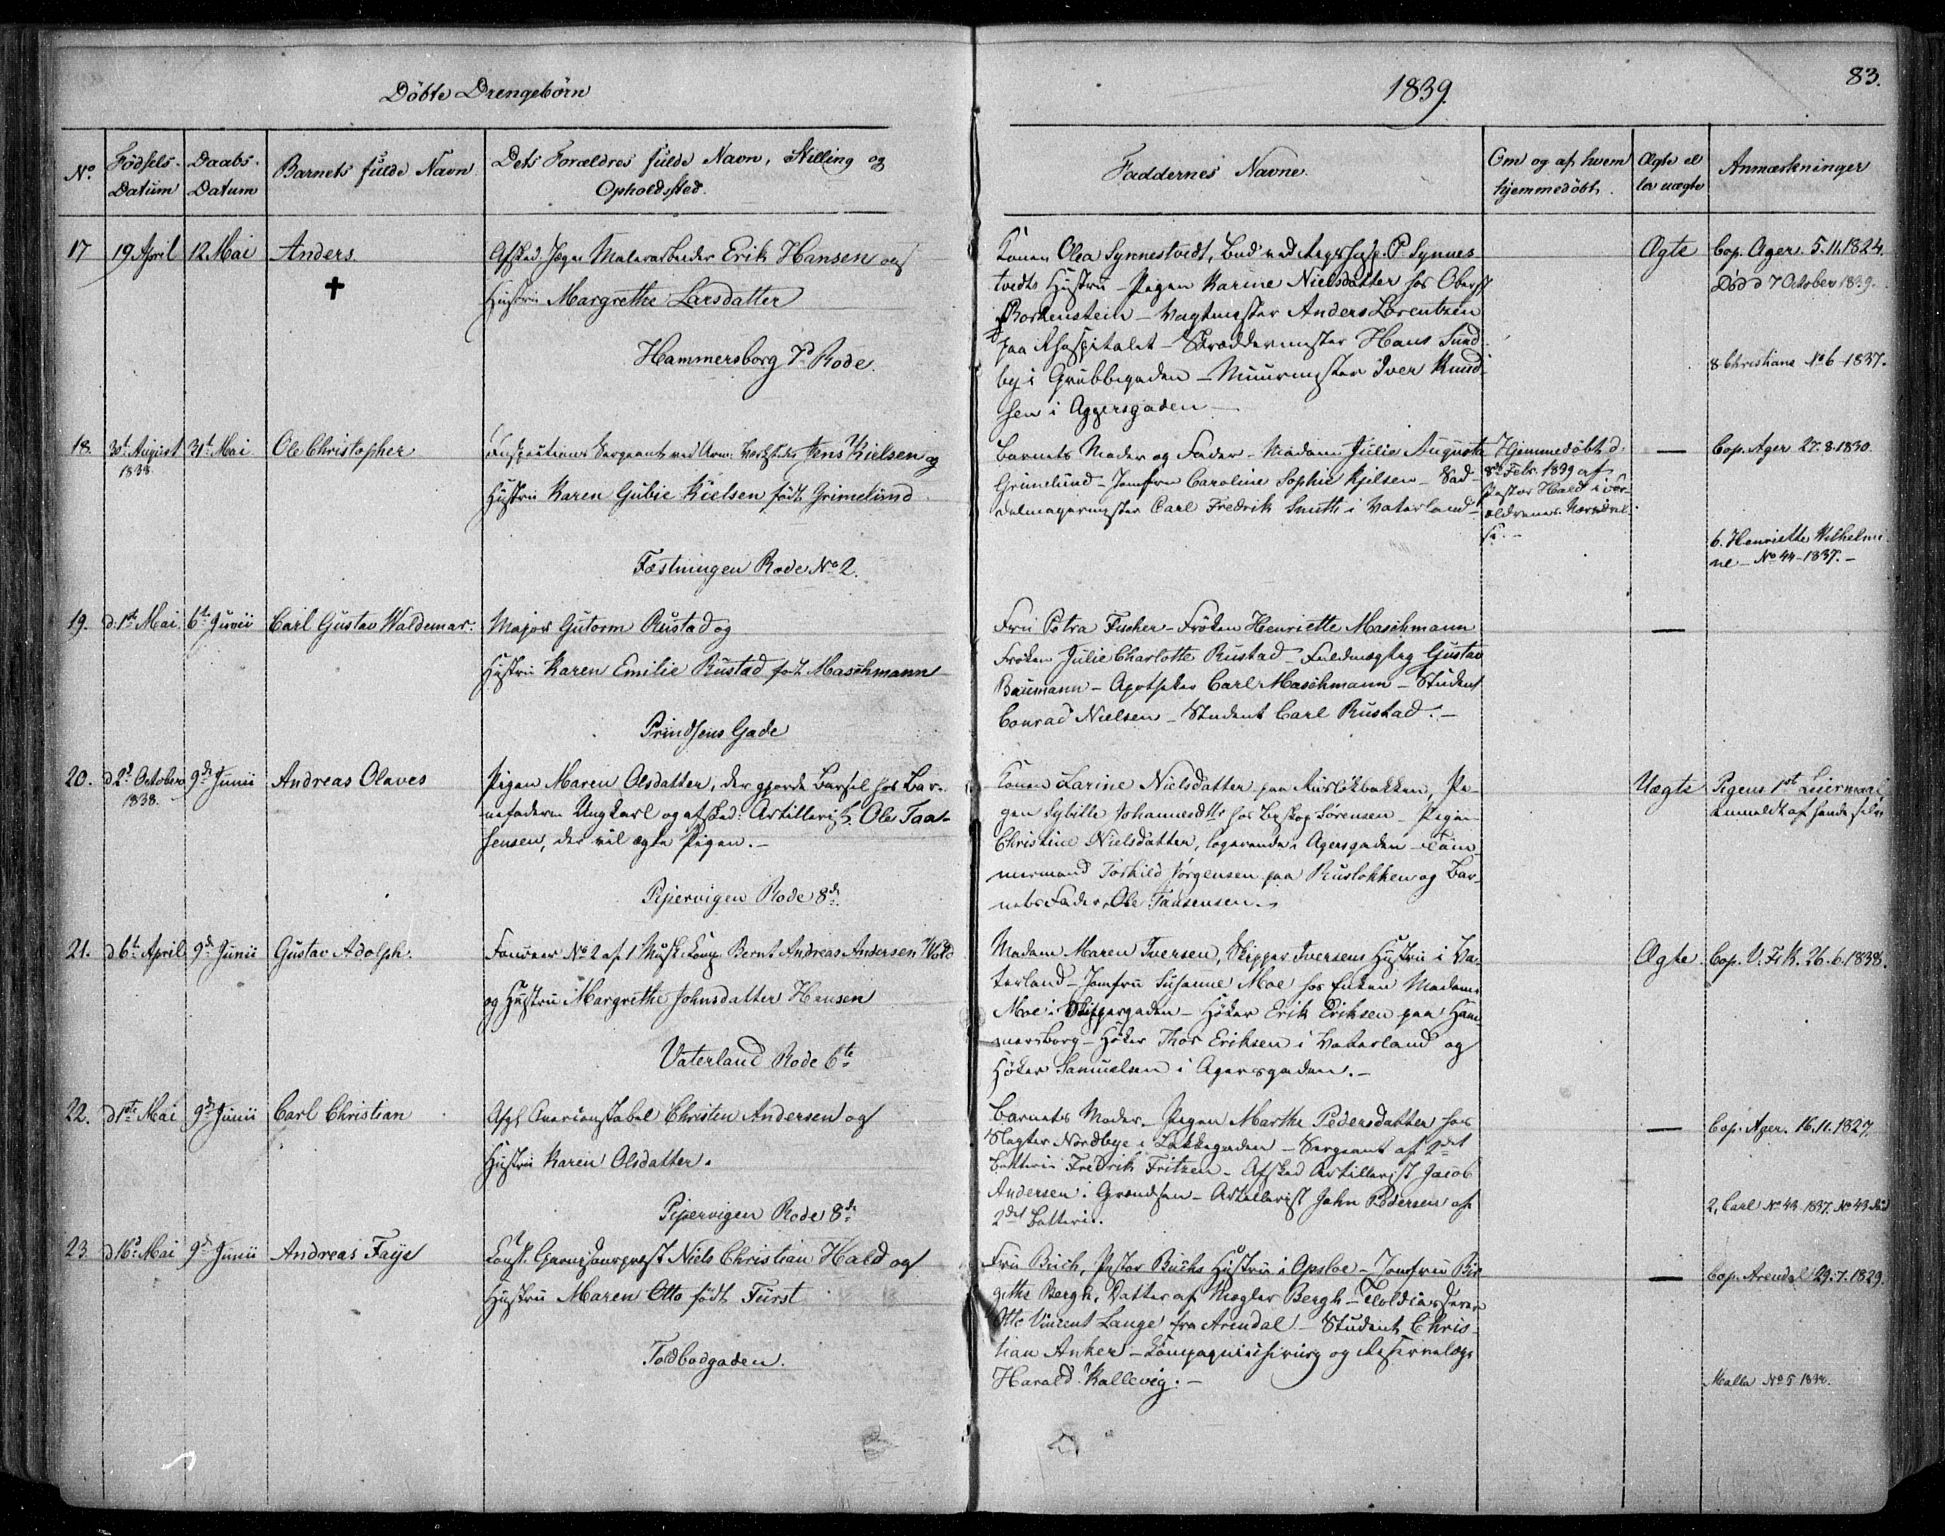 Döbte Drengebörn
1839.
83.
No.
Födsels-
Datum
Daabs-
Datum
Barnets fulde Navn
Dets Forældres fulde Navn, Stilling og
Opholdssted.
Faddernes Navne.
Om og af hvem
hjemmedöbt.
Ægte el
ler uægte
Anmærkninger
17
19 April
12 Mai
Anders.
Afsked. Jæger Malerarbeider Erik Hansen og
Hustru Margrethe Larsdatter
Hammersborg 7d Rode.
Konen Olea Synnestvedt, Bud ved P. Synnes
tvedts Hustru – Pigen Karine Nielsdatter hos Oberst
Borkenstein – Vagtmester Anders Lorentzen
paa Rhospitalet – Skræddermester Hans Sund-
bye i Grubbegaden – Muurmester Iver Knud-
sen i Aggersgaden –
Ægte
Cop. Ager. 5.11.1824.
Död d 7 October 1839.
8 Christiane No 6-1837.
18.
30t August
1838.
31t Mai
Ole Christopher
Inspections Sergeant ved Arm: Værksteder Jens Kielsen og
Hustru Karen Gubie Kielsen födt Grimelund
Fæstningen Rode No 2.
Barnets Moder og Fader – Madam Julie Augusta
Grimelund – Jomfru Caroline Sophie Kjelsen – Sad-
delmagermester Carl Fredrik Smith i Vaterland –
Hjemmedöbt d.
8de Febr. 1839 af
Pastor Hald i For-
ældrenes Nærværel
se. –
—
Cop. Ager 27.8.1830
6. Henriette Wilhelmi
ne – No 44-1837. –
19.
d. 1ste Mai
6te Junii
Carl Gustav Waldemar.
Major Gutorm Rustad og
Hustru Karen Emilie Rustad født Maschmann
Prindsens Gade
Fru Petra Fischer – Fröken Henriette Maschmann
Fröken Julie Charlotte Rustad – Fuldmægtig Gustav
Baumann – Apotheker Carl Maschmann – Student
Conrad Nielsen – Student Carl Rustad. –
—
20.
d 2d October
1838.
9de Junii
Andreas Olaves
Pigen Maren Olsdatter, der gjorde Barsel hos Bar-
nefaderen Ungkarl og afsked: Artillerist Ole Taa-
sensen, der vil ægte Pigen. –
Pipervigen Rode 8de
Konen Larine Nielsdatter paa Rusløkbakken, Pi-
gen Sybille Johannesdtr hos Biskop Sörensen – Pigen
Christine Nielsdatter, logerende i Agersgaden – Töm-
mermand Torkild Jörgensen paa Ruslökken og Bar-
nets Fader Ole Taasensen. –
Uægte
Pigens 1st Leiermaal
anmeldt af hende selv
21.
d 6t April
9de Junii
Gustav Adolph.
No 2 af 1 Musk. Comp. Bernt Andreas Andersen Wold
og Hustru Margrethe Johnsdatter Hansen
Vaterland Rode 6te
Madam Maren Iversen, Skipper Iversens Hustru i Va-
terland – Jomfru Susanne Moe hos Enken Madame
Moe i Skippergaden – Höker Erik Eriksen paa Ham
mersborg – Höker Thor Eriksen i Vaterland og
Höker Samuelsen i Agersgaden. –
Ægte
Cop. V. Frk. 26.6.1838.
22.
d 1ste Mai
9de Junii
Carl Christian
Afsk. Overconstabel Christen Andersen og
Hustru Karen Olsdatter.
Pipervigen Rode 8de
Barnets Moder – Pigen Marthe Pedersdatter hos
Slagter Nordbye i Lakkegaden – Sergeant af 2det
Batteri Fredrik Fritzen – Afsked Artillerist Jacob
Andersen i Grændsen – Artillerist John Pedersen af
2det Batteri.
—
Cop. Ager. 16.11.1827.
2, Carl No 43 1837. No 43 död
23
d 16d Mai
9de Junii
Andreas Faye
Const. Garnisonsprest Niels Christian Hald og
Hustru Maren Otto födt Fürst
Toldbodgaden.
Fru Buch, Pastor Buchs Hustru i Opsloe – Jomfru Bir
githe Bergh, Datter af Mægler Bergh – Toldkasserer
Otto Vincent Lange fra Arendal – Student Chris-
tian Anker – Compagniechirurg og Reservelæge
Harald Kallevig. –
—
Cop. Arendal 29.7.1829.
Malla No 5 1838.